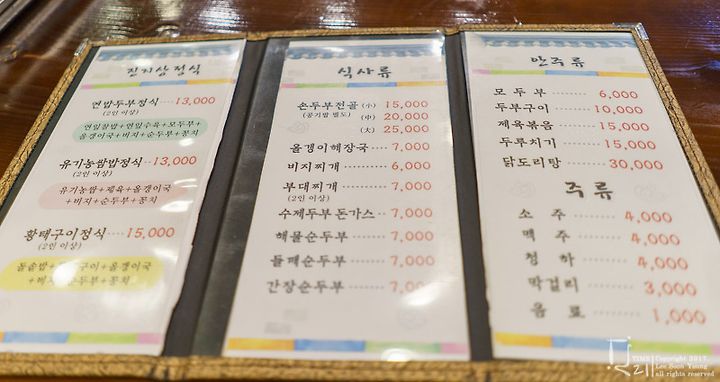 진지상정식
연잎두부정식 ···· 13,000
(2인 이상)
연잎찰밥+연잎수육+모두부+
올갱이국+비지+순두부+꽁치
유기농쌈밥정식 ···· 13,000
(2인 이상)
유기농쌈+제육+올갱이국
+비지+순두부+꽁치
황태구이정식 ···· 15,000
(2인 이상)
돌솥밥+구이+올갱이국
+비지+순두부+꽁치
식사류
손두부전골 (小) 15,000
(공기밥 별도) (中) 20,000
(大) 25,000
올갱이해장국 ···· 7,000
비지찌개 ···· 6,000
부대찌개 ···· 7,000
(2인 이상)
수제두부돈가스 ···· 7,000
해물순두부 ···· 7,000
들깨순두부 ···· 7,000
간장순두부 ···· 7,000
안주류
모두부 ···· 6,000
두부구이 ···· 10,000
제육볶음 ···· 15,000
두루치기 ···· 15,000
닭도리탕 ···· 30,000
주류
소주 ···· 4,000
맥주 ···· 4,000
청하 ···· 4,000
막걸리 ···· 3,000
음료 ···· 1,000
TIME Copyright 2017.
Lee Soon Young
all rights reserved